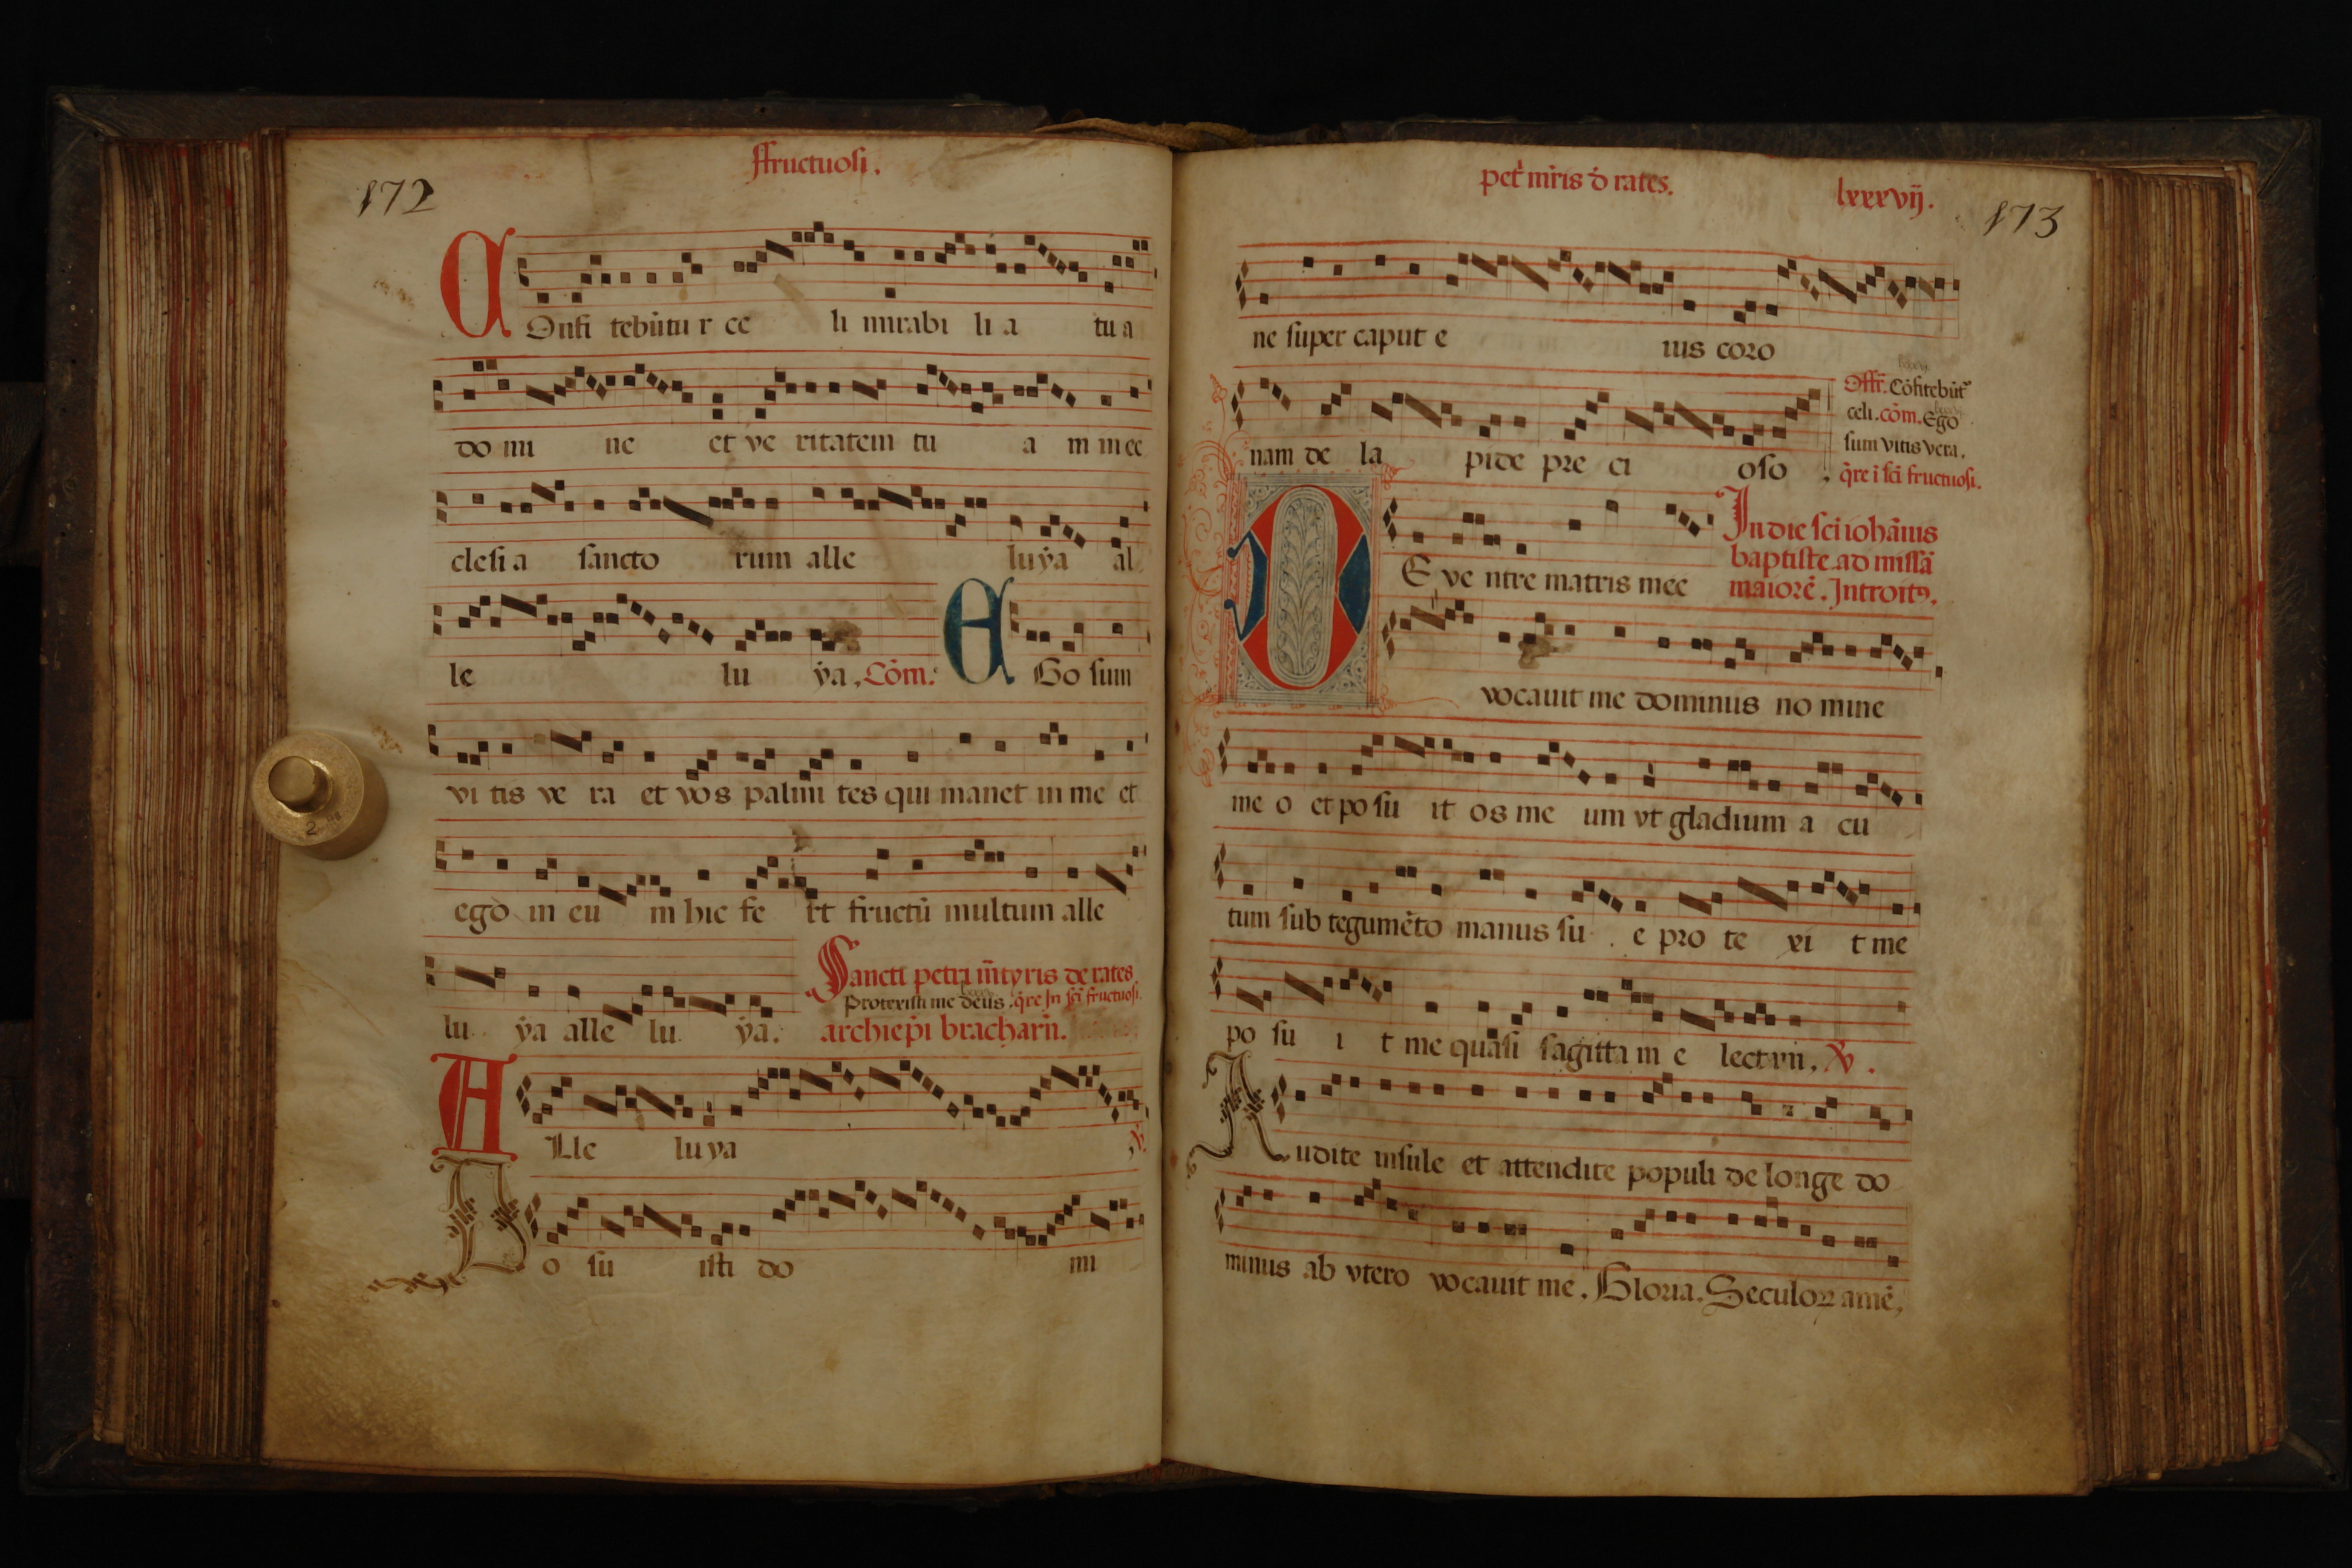 ffructuosi.
172
COnfi tebūtu r ce li mirabi li a tu a
do mi ne et ve ritatem tu a in in ec
clesi a sancto rum alle luẏa al
le lu ẏa. Cōm. EGo sum
vi tis ve ra et vos palmi tes qui manet in me et
ego in eu m hic fe rt fructū multum alle
Sancti petri m̄tyris de rates
Protexisti me deus. q̄re In sc̄i fructuosi.
lu ẏa alle lu ẏa. archiep̄i bracharn̄.
ALle lu ya ℣.
Po su isti do mi
pet' mr̄is d̄ rates.
lxxxvij.
173
ne super caput e ius coro
Off̄. Cōfitebūt'
celi. cōm. Ego
sum vitis vera.
nam de la pide pre ci oso . q̄re ī sc̄i fructuosi.
In die sc̄i iohānis
baptiste. ad missā
DE ve ntre matris mee maiorē. Introitꝰ.
vocauit me dominus no mine
me o et po su it os me um vt gladium a cu
tum sub tegumēto manus su . e pro te xi t me
po su i t me quasi sagitta m e lectam. ℣.
Audite insule et attendite populi de longe do
minus ab vtero vocauit me. Gloria. Seculoꝝ amē.